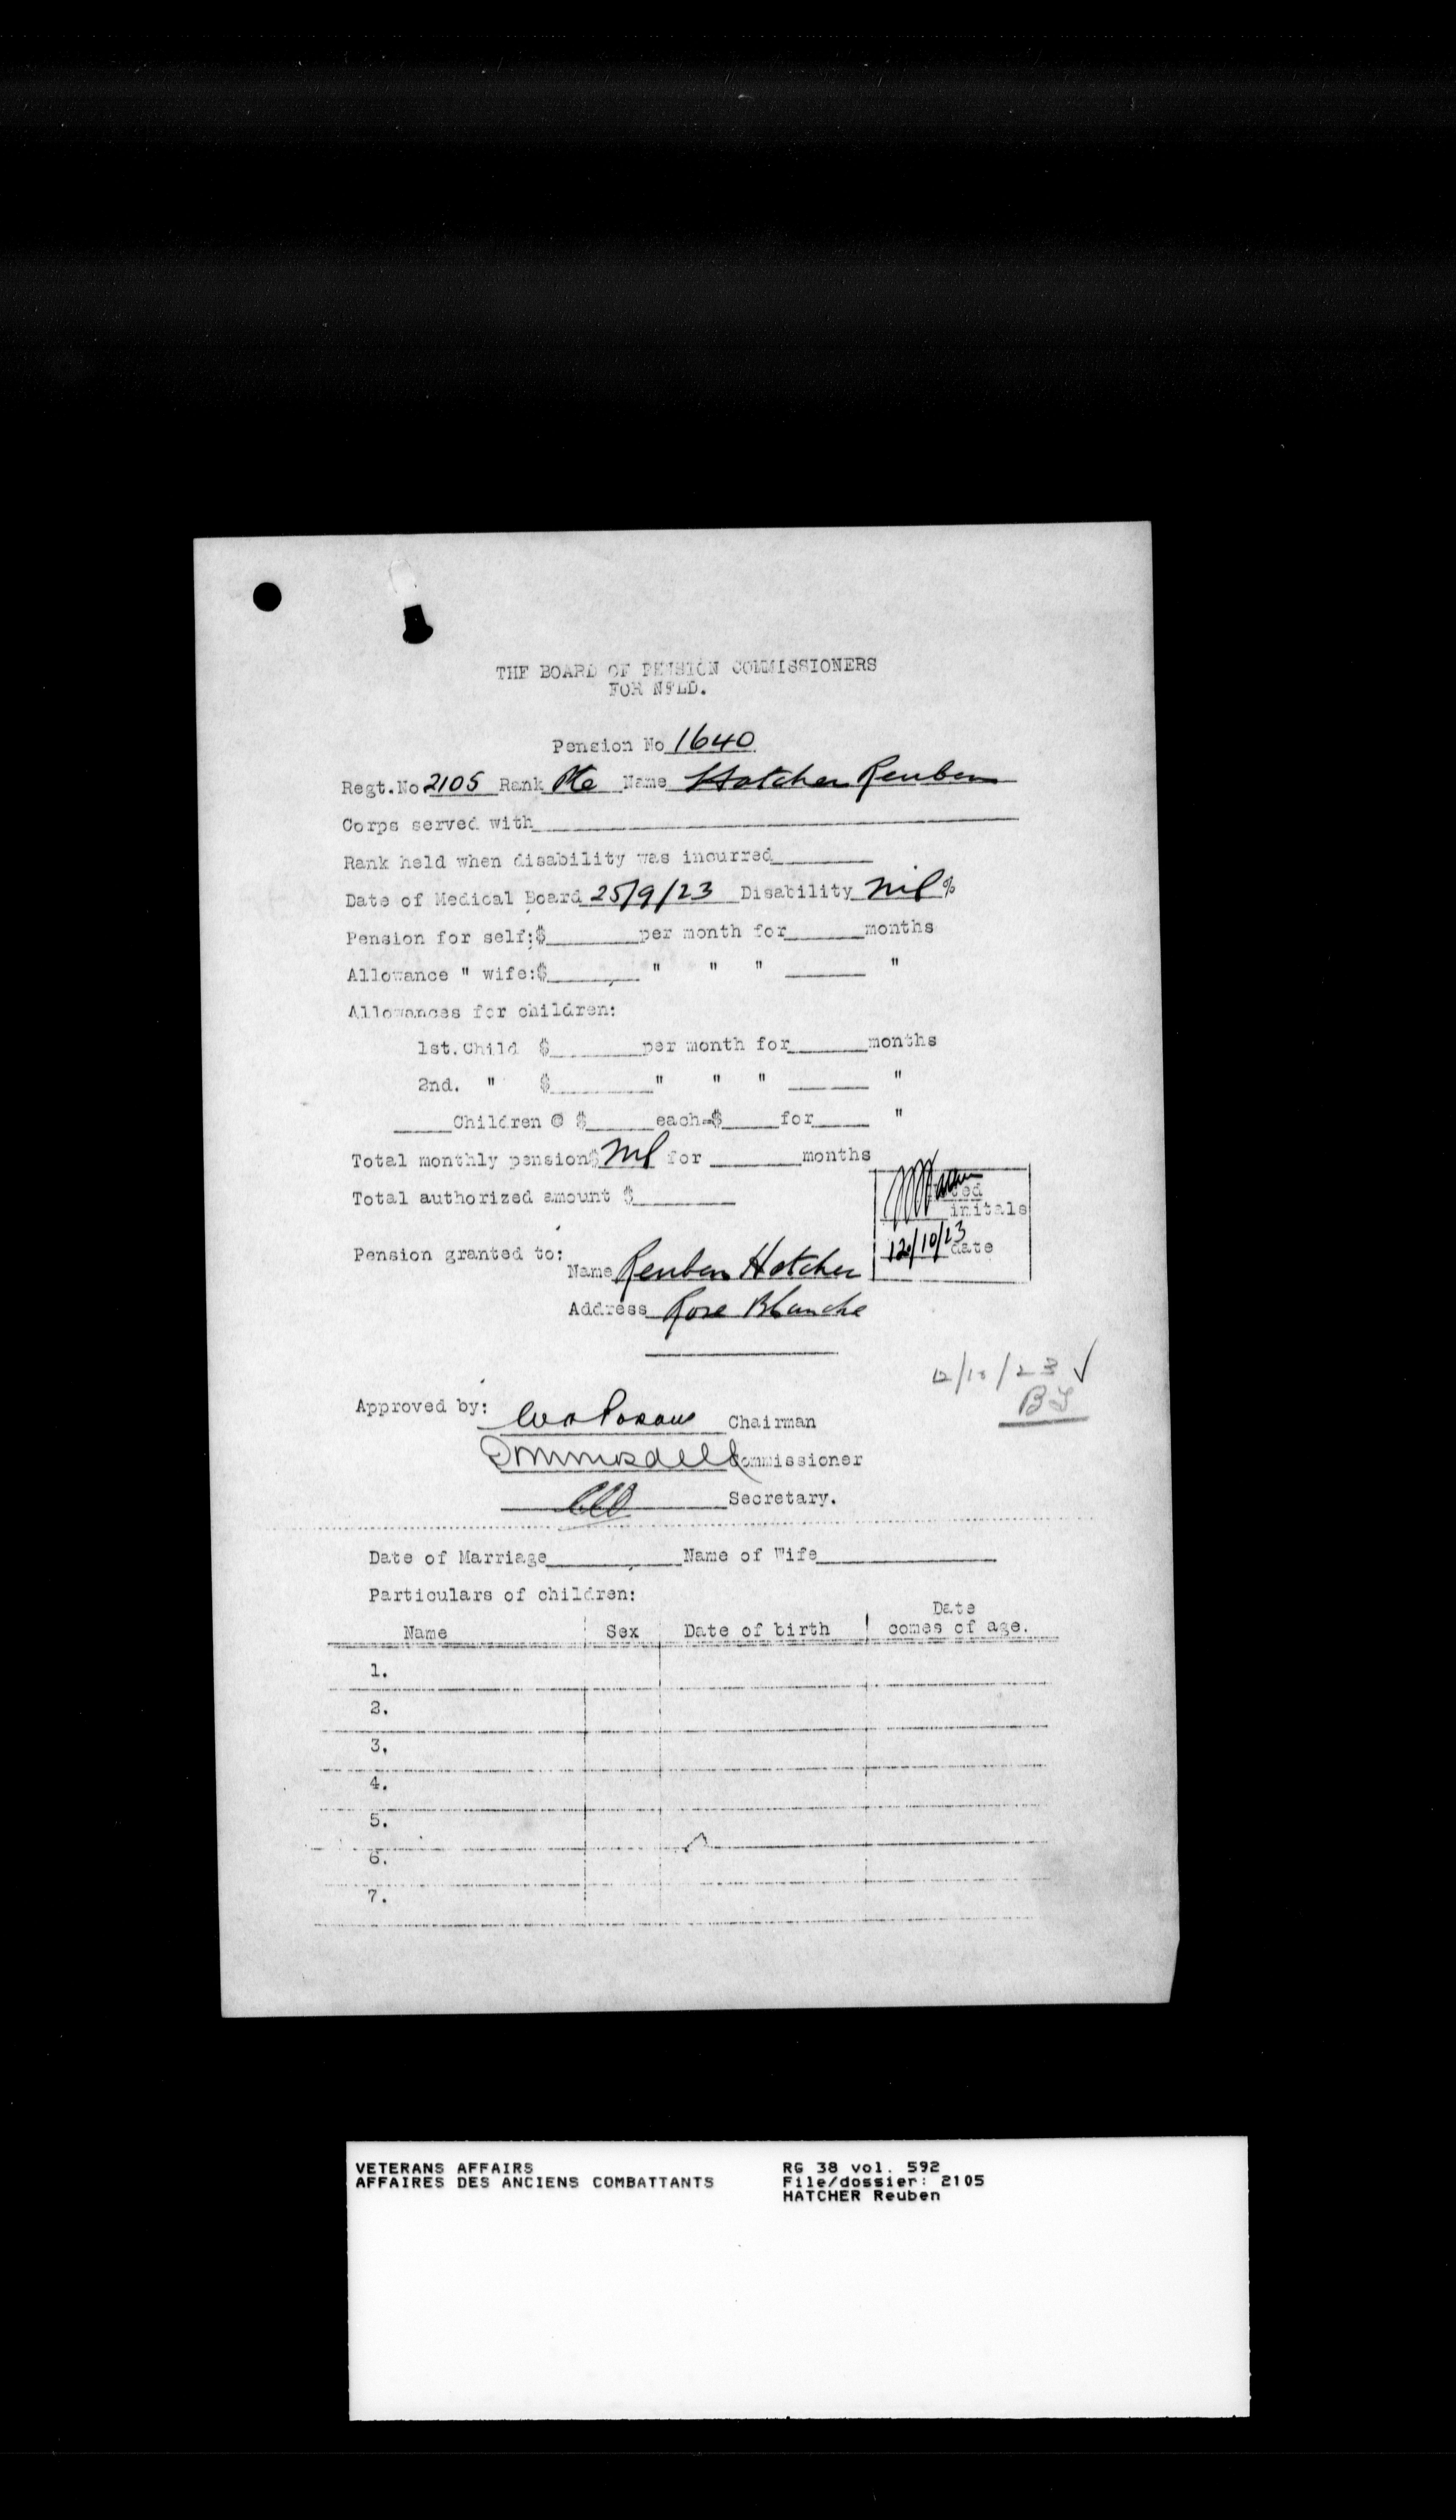 THE BOARD OF PENSION COMMISSIONERS
FOR NFLD.
Pension No 1640
Regt.No 2105 Rank Pte Name Hatcher Reuben
Corps served with
Rank held when disability was incurred
Date of Medical Board 25/9/23 Disability Nil %
Pension for self:$ per month for months
Allowance " wife:$ " " " "
Allowances for children:
1st. Child $ per month for months
2nd. " $ " " " "
Children @ $ each=$ for "
Total monthly pension$ Nil for months
Total authorized amount $
initals
12/10/23 date
Pension granted to:
Name Reuben Hatcher
Address Rose Blanche
12/10/23 ✓
Approved by: Chairman
Commissioner
Secretary.
Date of Marriage Name of Wife
Particulars of children:
Name Sex Date of birth Date comes of age.
1.
2.
3.
4.
5.
6.
7.
VETERANS AFFAIRS
AFFAIRES DES ANCIENS COMBATTANTS
RG 38 vol. 592
File/dossier: 2105
HATCHER Reuben